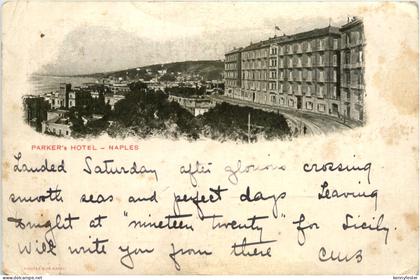 PARKER's HOTEL – NAPLES
Landed Saturday after glorious crossing
smooth seas and perfect days. Leaving
tonight at "nineteen twenty" for Sicily.
Will write you from there